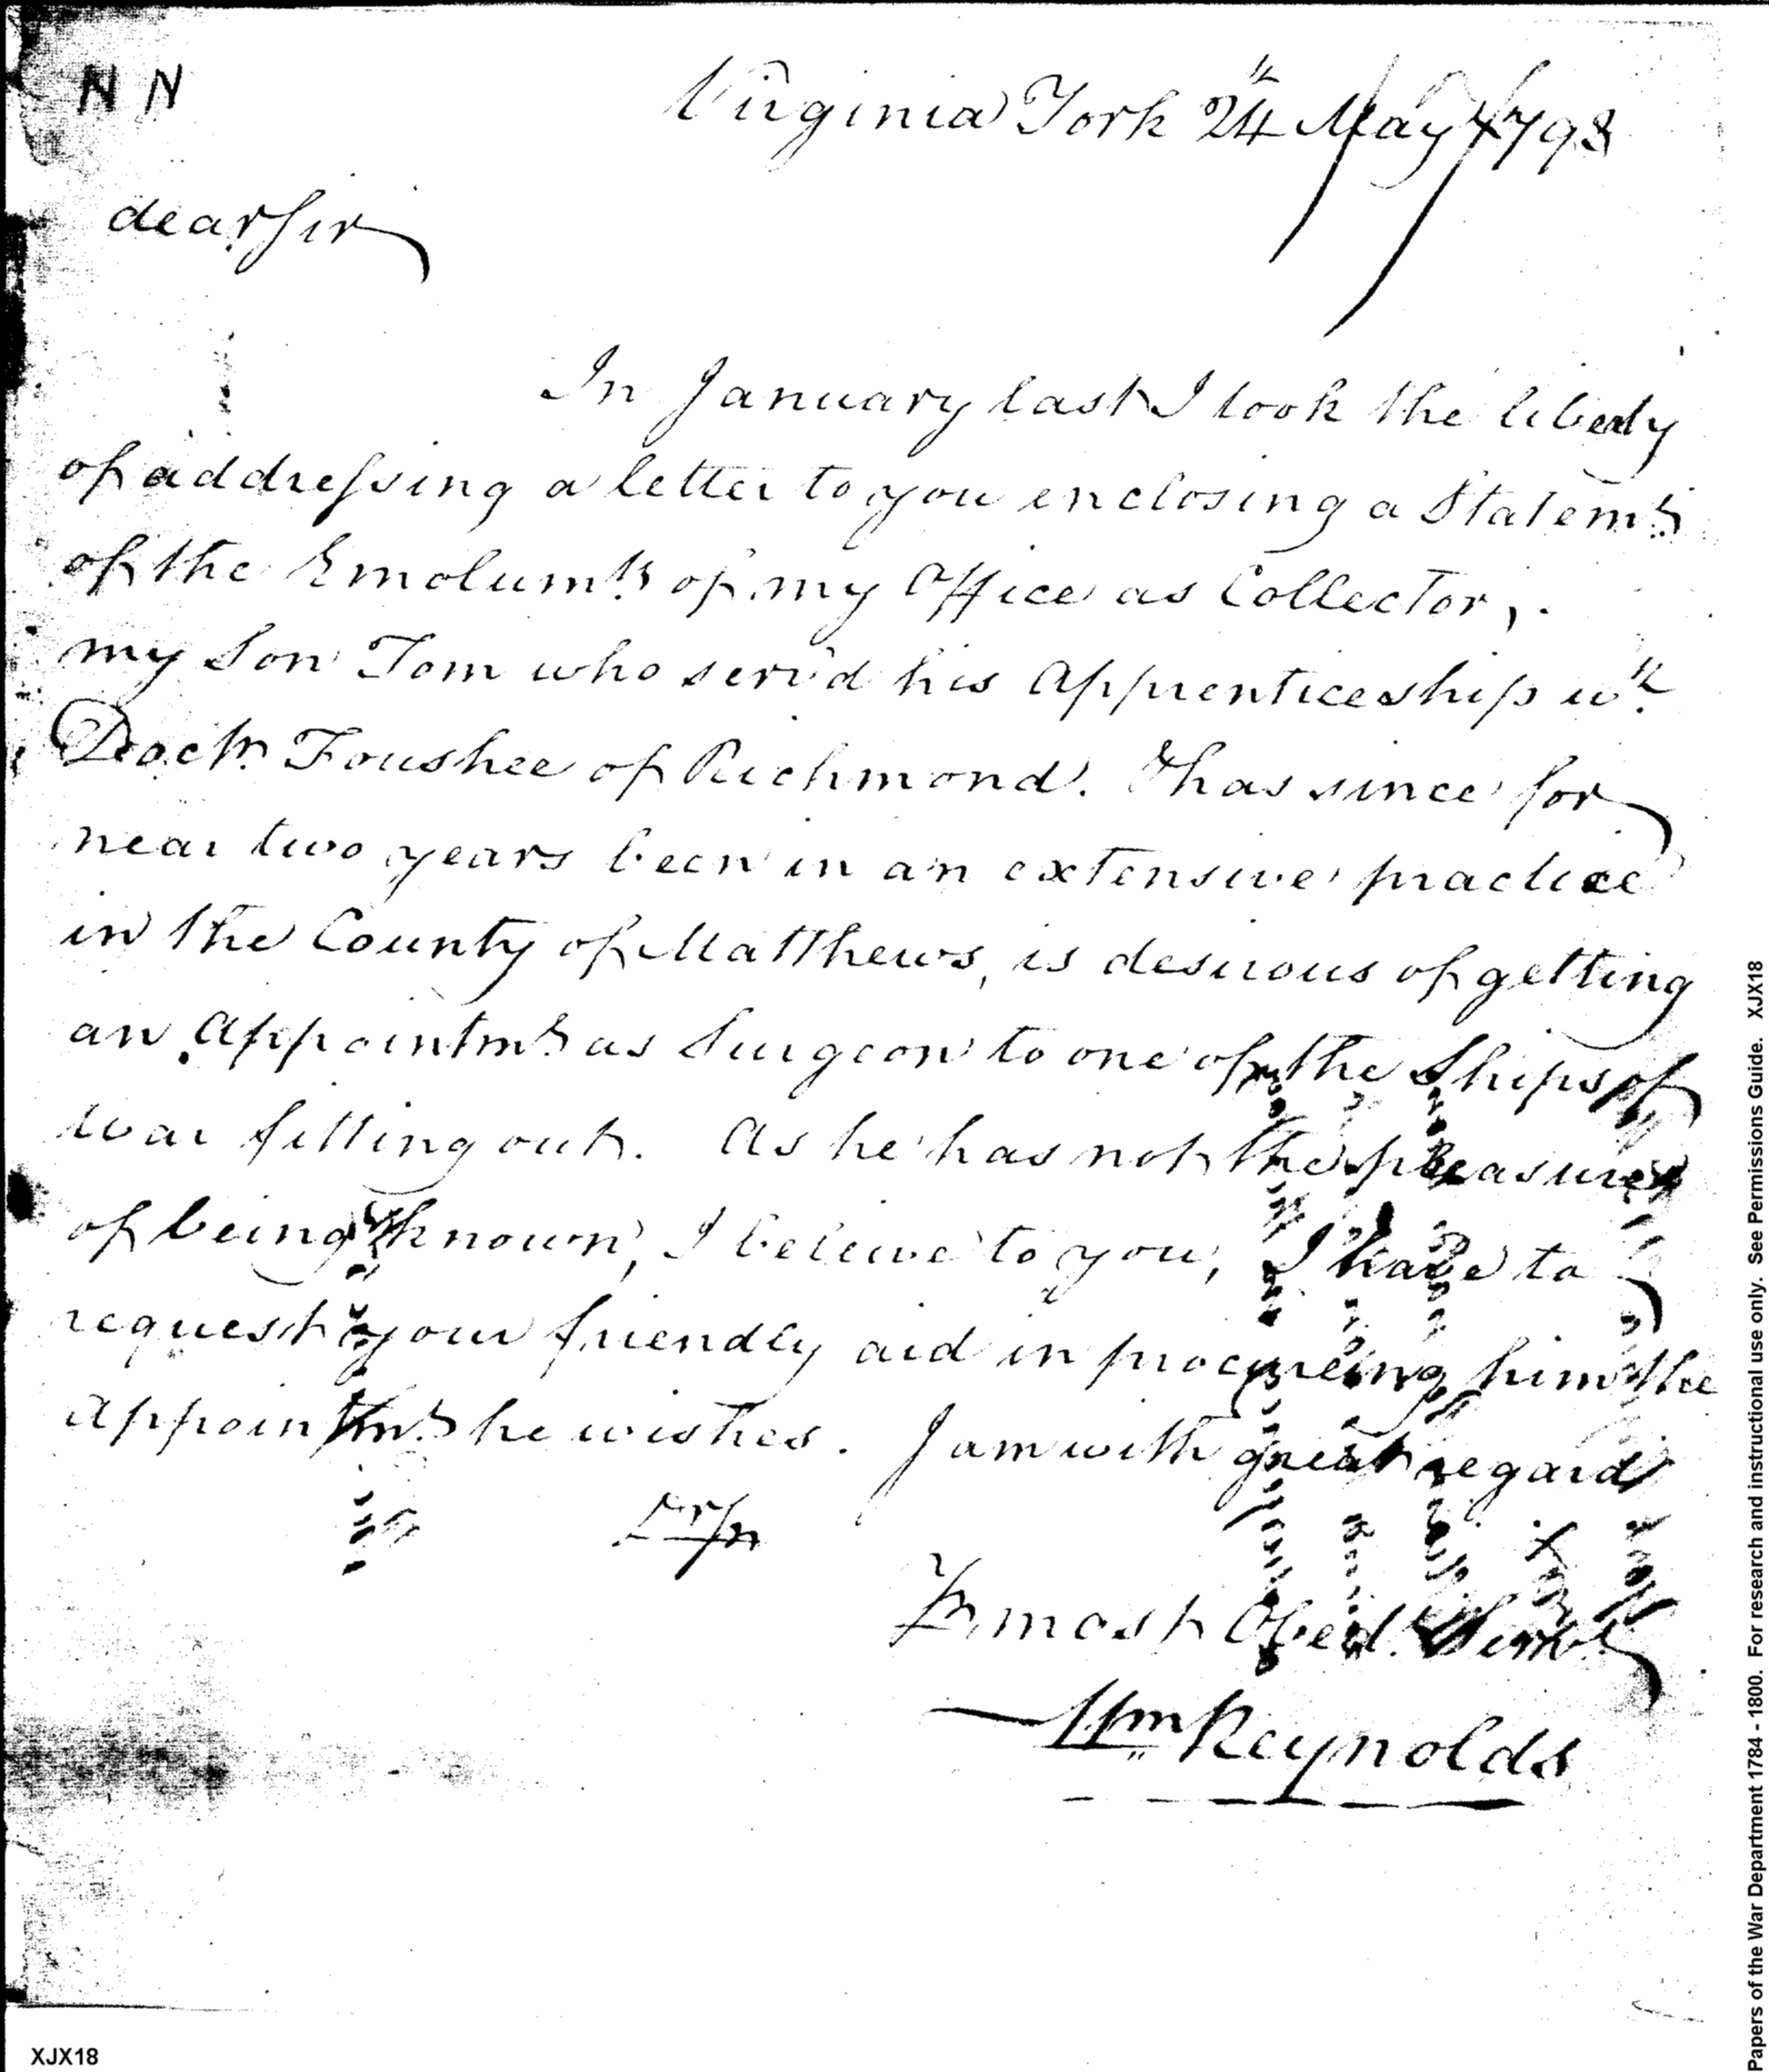 N N
Virginia York 24th May 1798
dear Sir
In January last I took the liberty
of addressing a letter to you enclosing a Statemt
of the Emolumts of my Office as Collector,.
my Son Tom who serv'd his Apprenticeship wth
Doctr Foushee of Richmond. & has since for
near two years been in an extensive practice
in the County of Matthews, is desirous of getting
an Appointmt as Surgeon to one of the Ships of
War fitting out. As he has not the pleasure
of being known, I beleive to you, I have to
request your friendly aid in procureing him the
Appointmt he wishes. I am with great regard
Sir
Yr most Obedt Servt
Wm Reynolds
XJX18
Papers of the War Department 1784 - 1800. For research and instructional use only. See Permissions Guide. XJX18